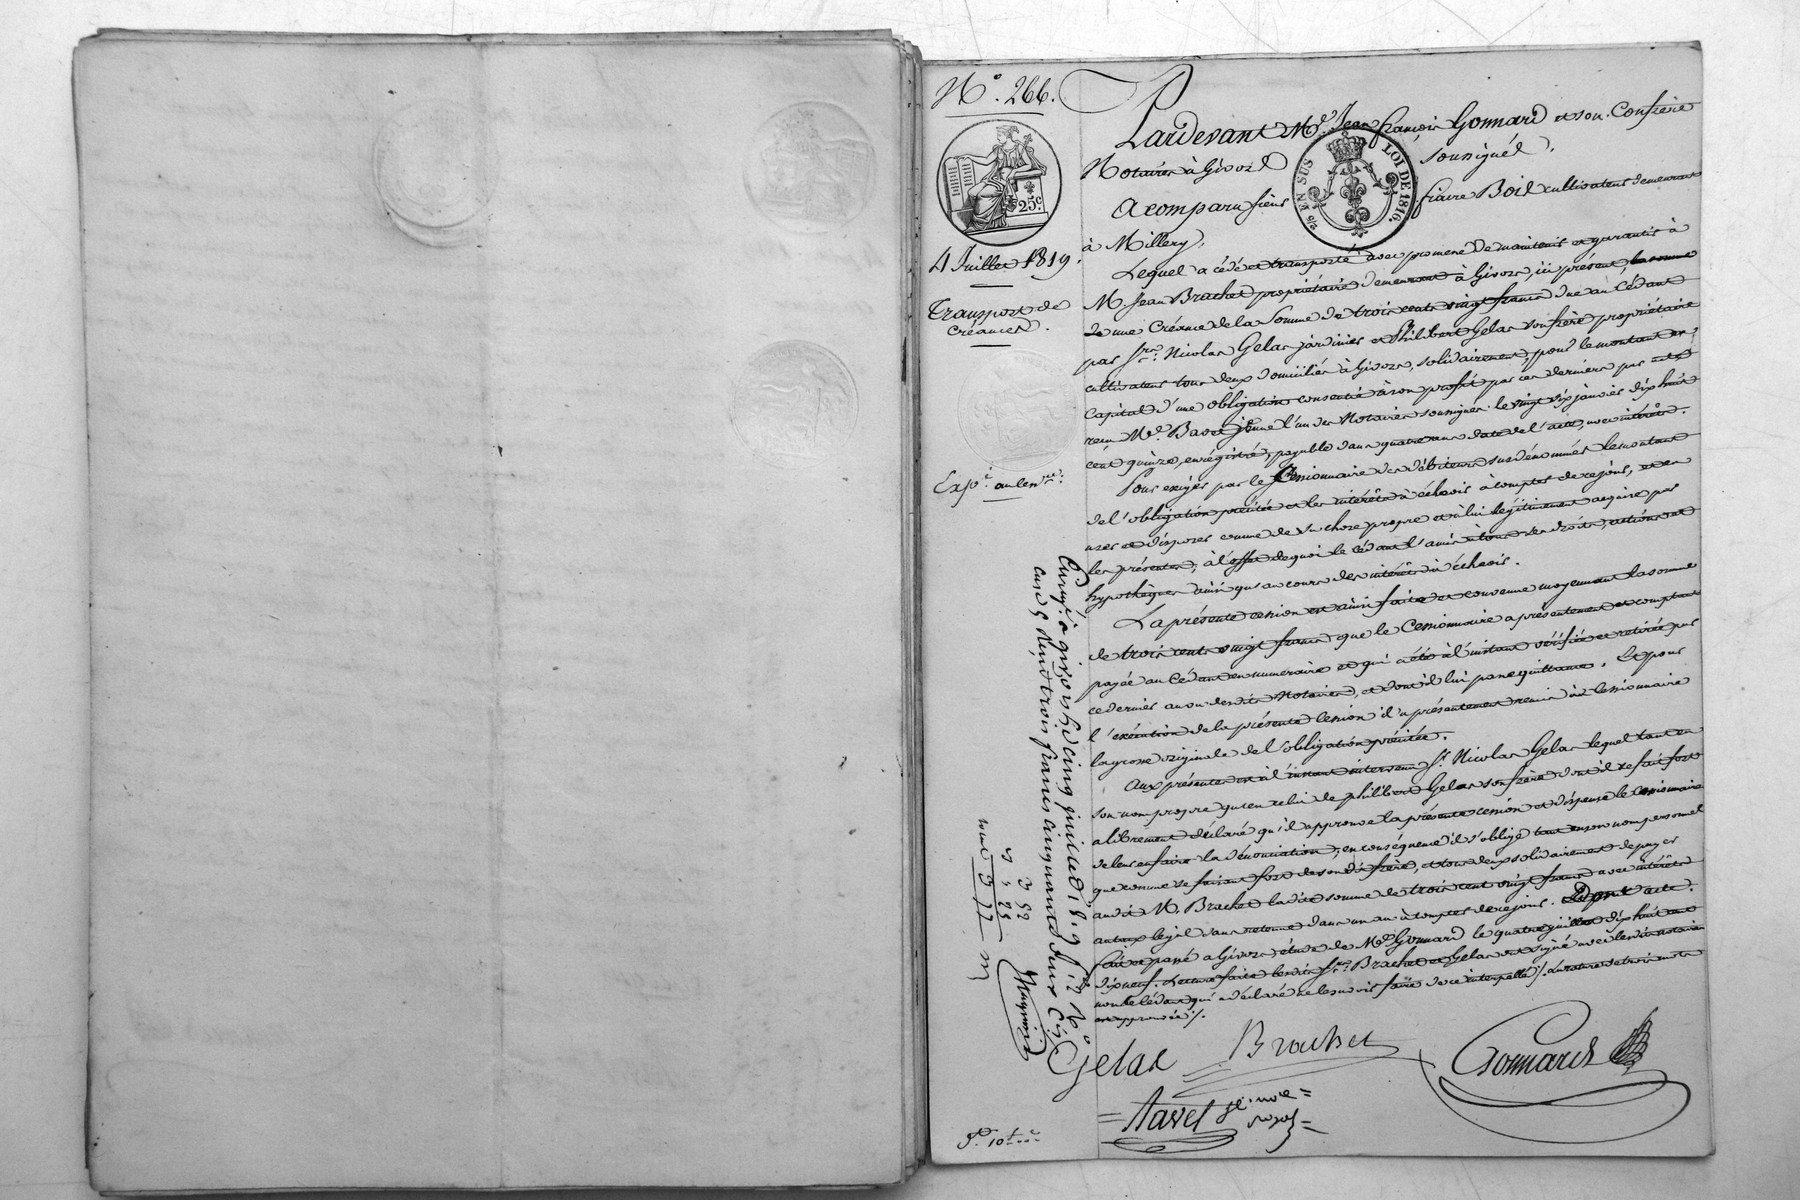 N.° 266.
25.c
4 Juillet 1819.
Transport de
Créances.
Exp.é au Cen.re
Pardevant M.e Jean françois Gonnard et son Confrère
Notaires à Givors soussignés.
EN SUS LOI DE 1816.
A comparu sieur Boil cultivateur demeurant
à Millery,
Lequel a cédé et transporté avec promesse de maintenir et garantir à
M. Jean Brachet propriétaire demeurant à Givors, ici présent,
de une Créance de la Somme de trois cents vingt francs due au Cédant
par S.rs Nicolas Gelas jardinier et Philibert Gelas son frère propriétaire
cultivateur tous deux domiciliés à Givors, solidairement, pour le montant en
Capital d'une obligation consentie à son profit par ces derniers par acte
reçu M.e Basset jeune l'un des Notaires soussignés le vingt six janvier dix huit
cent quinze, enregistré, payable dans quatre ans date de l'acte, avec intérêts.
Pour exiger par le Cessionnaire des débiteurs susdénommés le montant
de l'obligation précitée et les intérêts à échoir à compter de ce jour, et en
user et disposer comme de sa chose propre et à lui légitimement acquise par
les présentes, à l'effet de quoi le Cédant l'a mis à tous ses droits, actions et
hypothèques ainsi qu'au cours des intérêts à échoir.
La présente cession est ainsi faite et convenue moyennant la somme
de trois cents vingt francs que le Cessionnaire a présentement et comptant
payée au Cédant en numéraire et qui a été à l'instant vérifiée et retirée par
ce dernier au vu desdits Notaires, et dont il lui passe quittance. Et pour
l'exécution de la présente Cession il a présentement remis au Cessionnaire
la grosse originale de l'obligation précitée.
Aux présentes est à l'instant intervenu S.r Nicolas Gelas lequel tant en
son nom propre qu'en celui de philibert Gelas son frère dont il se fait fort
a librement déclaré qu'il approuve la présente cession et dispense le cessionnaire
de leur en faire la dénonciation, en conséquence il s'oblige tant en son nom personnel
que comme se faisant fort de sondit frère, et tous deux solidairement de payer
audit M. Brachet ladite somme de trois cent vingt francs avec intérêts
au taux légal sans retenue dans un an à compter de ce jour. Dont acte.
Fait et passé à Givors étude de M.e Gonnard le quatre juillet dix huit cent
dix neuf. Lecture faite lesdits S.rs Brachet et Gelas ont signé avec lesdits notaires
non le Cédant qui a déclaré ne le savoir faire de ce interpellé /. La rature de trois mots
est approuvée /.
Gelas Brachet Gonnard
Favel
Enreg.é à givors le cinq juillet 1819 f.° 12 R.°
case 5 reçu trois francs cinquante deux c.es
3 52